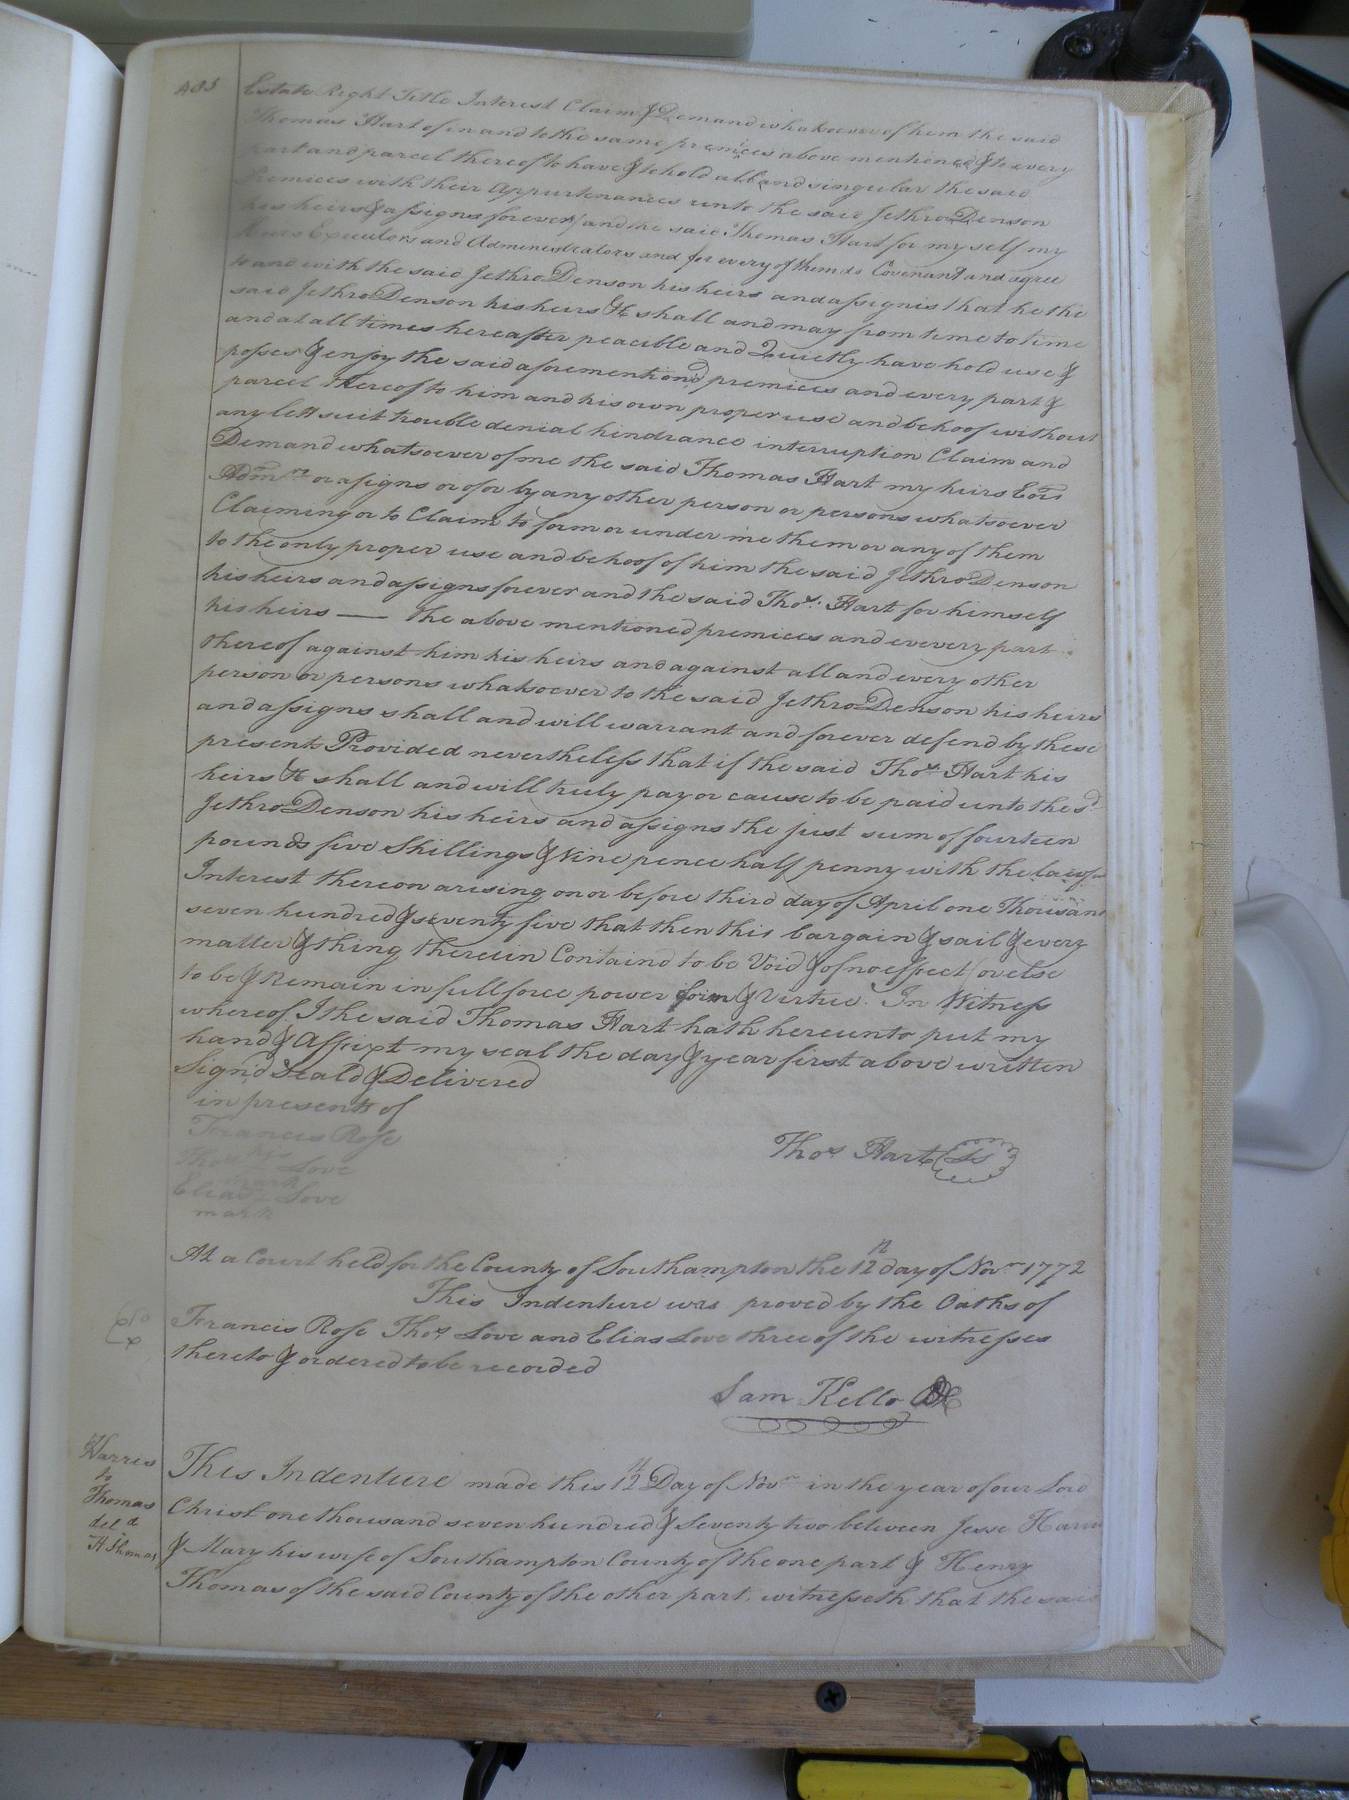 485
Estate Right Title Interest Claim & Demand whatsoever of him the said
Thomas Hart of in and to the same premices above mentioned & to every
part and parcel thereof to have & to hold all and singular the said
Premices with their Appurtenances unto the said Jethro Denson
his heirs & assigns forever and the said Thomas Hart for my self my
Heirs Executors and Administrators and for every of them do Covenant and agree
to and with the said Jethro Denson his heirs and assignis that he the
said Jethro Denson his heirs &c shall and may from time to time
and at all times hereafter peacible and Quietly have hold use &
posses & enjoy the said aforemention'd premices and every part &
parcel thereof to him and his own proper use and behoof without
any lett suit trouble denial hindrance interruption Claim and
Demand whatsoever of me the said Thomas Hart my heirs Exors
Admrs or assigns or of or by any other person or persons whatsoever
Claiming or to Claim to form or under me them or any of them
to the only proper use and behoof of him the said Jethro Denson
his heirs and assigns forever and the said Thos. Hart for himself
his heirs — the above mentioned premices and evevery part
thereof against him his heirs and against all and every other
person or persons whatsoever to the said Jethro Denson his heirs
and assigns shall and will warrant and forever defend by these
presents Provided nevertheless that if the said Thos. Hart his
heirs &c shall and will truly pay or cause to be paid unto the sd
Jethro Denson his heirs and assigns the just sum of fourteen
pounds five Shillings & Nine pence half penny with the
Interest thereon arising on or before third day of April one Thousand
seven hundred & seventy five that then this bargain & sail & every
matter & thing therein Containd to be Void & of no effect / or else
to be & Remain in full force power form & Virtue. In Witness
whereof I the said Thomas Hart hath hereunto put my
hand & Affixt my seal the day & year first above written
Sign'd Seald & Delivered
in presents of
Francis Rose
Thos Love
mark
Elias Love
mark
Thos Hart Ls
At a Court held for the County of Southampton the 12th day of Novr 1772
This Indenture was proved by the Oaths of
Francis Rose Thos Love and Elias Love three of the witnesses
thereto & ordered to be recorded
Sam Kello
Harris
to
Thomas
deld
H Thomas
This Indenture made this 12th Day of Novr in the year of our Lord
Christ one thousand seven hundred & Seventy two between Jesse Harris
& Mary his wife of Southampton County of the one part & Henry
Thomas of the said County of the other part. witnesseth that the said